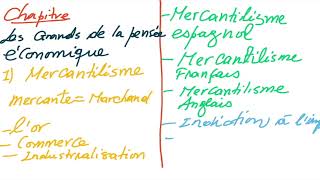 Chapitre
Les Grands de la pensée
économique
I) Mercantilisme
mercante = Marchand
- l'or
- Commerce
- Industrialisation
- Mercantilisme
espagnol
- Mercantilisme
Français
- Mercantilisme
Anglais
- Indication à l'im
-